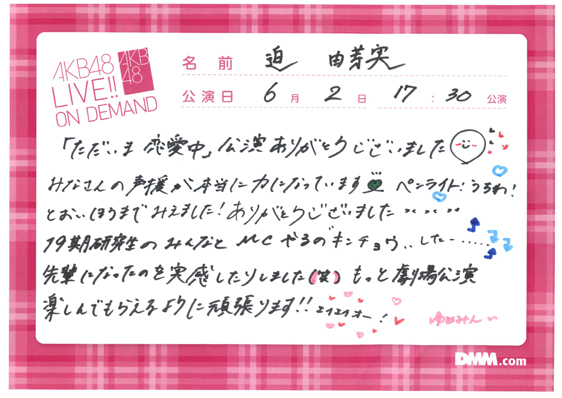 AKB48
LIVE!!
ON DEMAND
AKB
48
名前 迫 由芽実
公演日 6月 2日 17:30 公演
「ただいま 恋愛中」公演ありがとうございました
みなさんの声援が本当に力になっています ペンライト！うるわ！
とおいほうまでみえました！ありがとうございました
19期研究生のみんなとMCやるのキンチョウ..した-......
先輩になったのを実感したりしました(笑) もっと劇場公演
楽しんでもらえるように頑張ります!! エイエイオー！
ゆめみん
DMM.com